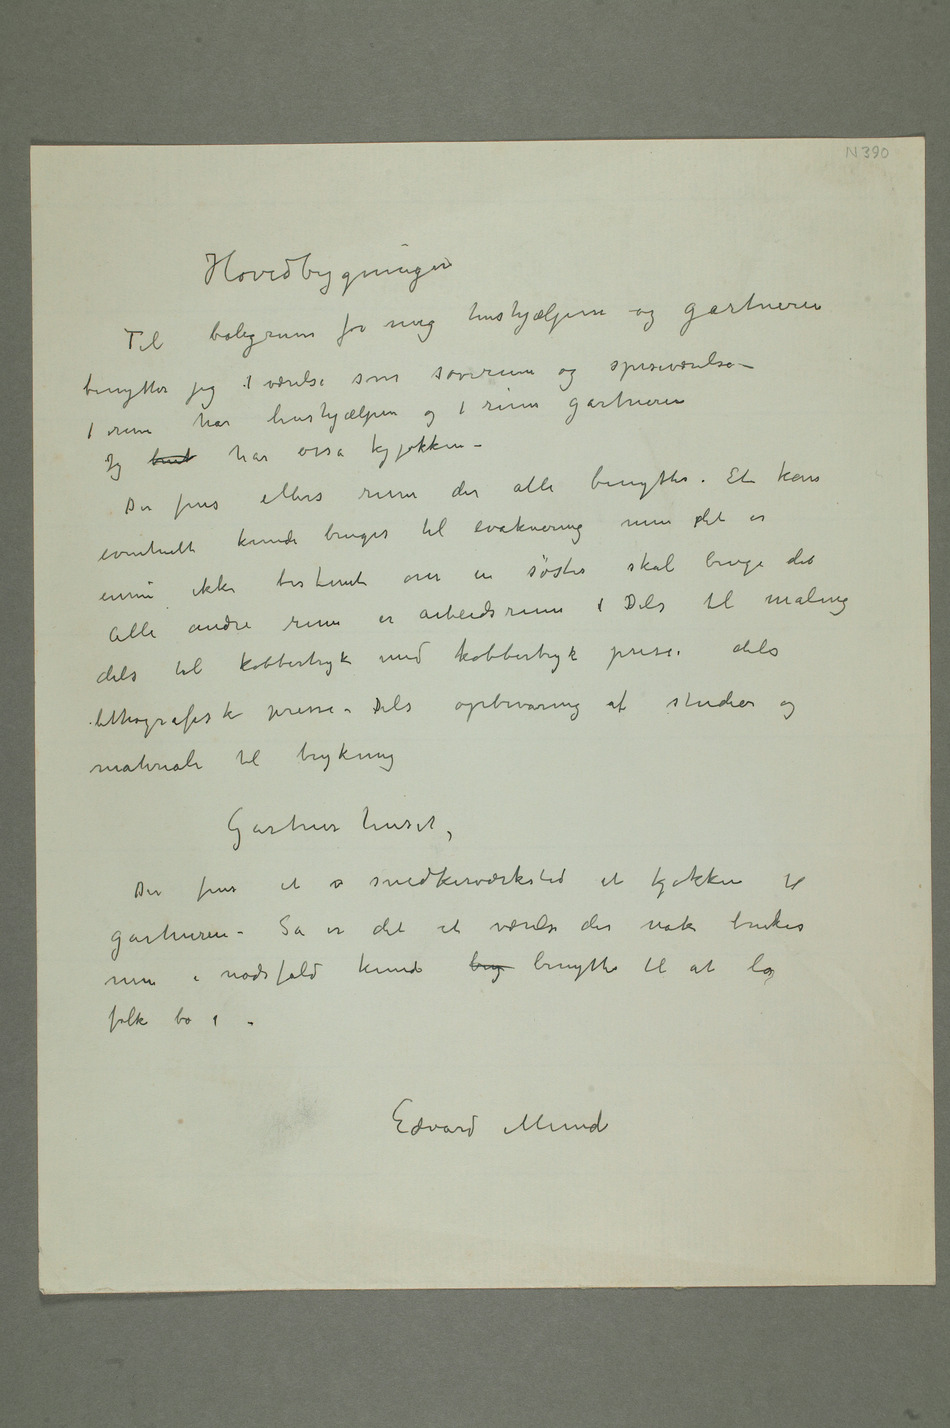 N 390
Hovedbygningen
Til boligrum for mig hushjælpen og gartneren
benytter jeg 1 værelse som soverum og spiseværelse –
1 rum har hushjælpen og 1 rum gartneren
Jg har osså kjøkken –
Der fins ellers rum der alle benyttes. Et kan
eventuelt kunde bruges til evakuering men det er
ennu ikke bestemt om en søster skal bruge det
Alle andre rum er arbeidsrum i Dels til maling
dels til kobbertryk med kobbertryk prese. dels
lithografisk presse. Dels opbevaring af studier og
materiale til trykning
Gartner huset,
Der fins et snedkerværksted et kjøkken til
gartneren – Så er det et værelse der nok brukes
men i nødsfald kunde benyttes til at la
folk bo i –
Edvard Munch